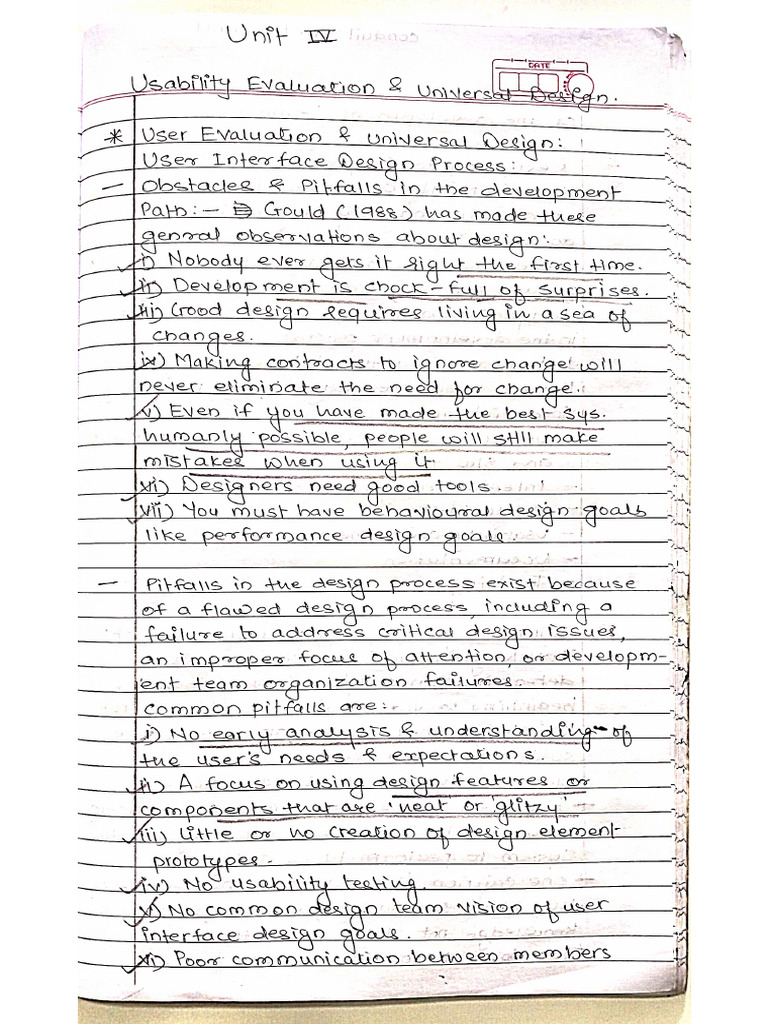 Unit IV
DATE
Usability Evaluation & Universal Design.
* User Evaluation & Universal Design:
User Interface Design Process:
- Obstacles & Pitfalls in the development
Path:- Gould (1988) has made these
genral observations about design:
i) Nobody ever gets it right the first time.
ii) Development is chock-full of surprises.
iii) Good design requires living in a sea of
changes.
iv) Making contracts to ignore change will
never eliminate the need for change.
v) Even if you have made the best sys.
humanly possible, people will still make
mistakes when using it
vi) Designers need good tools.
vii) You must have behavioural design goals
like performance design goals.
- Pitfalls in the design process exist because
of a flawed design process, including a
failure to address critical design issues,
an improper focus of attention, or developm-
ent team organization failures.
common pitfalls are:
i) No early analysis & understanding of
the user's needs & expectations.
ii) A focus on using design features or
components that are 'neat' or 'glitzy'
iii) Little or no creation of design element
prototypes.
iv) No usability testing.
v) No common design team vision of user
interface design goals.
vi) Poor communication between members